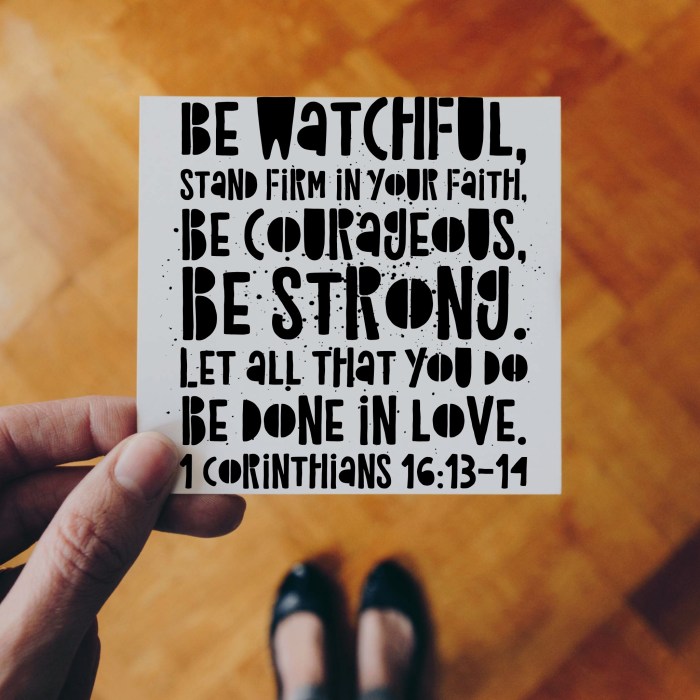 BE WATCHFUL,
STAND FIRM IN YOUR FAITH,
BE COURAGEOUS,
BE STRONG.
LET ALL THAT YOU DO
BE DONE IN LOVE.
1 CORINTHIANS 16:13-14